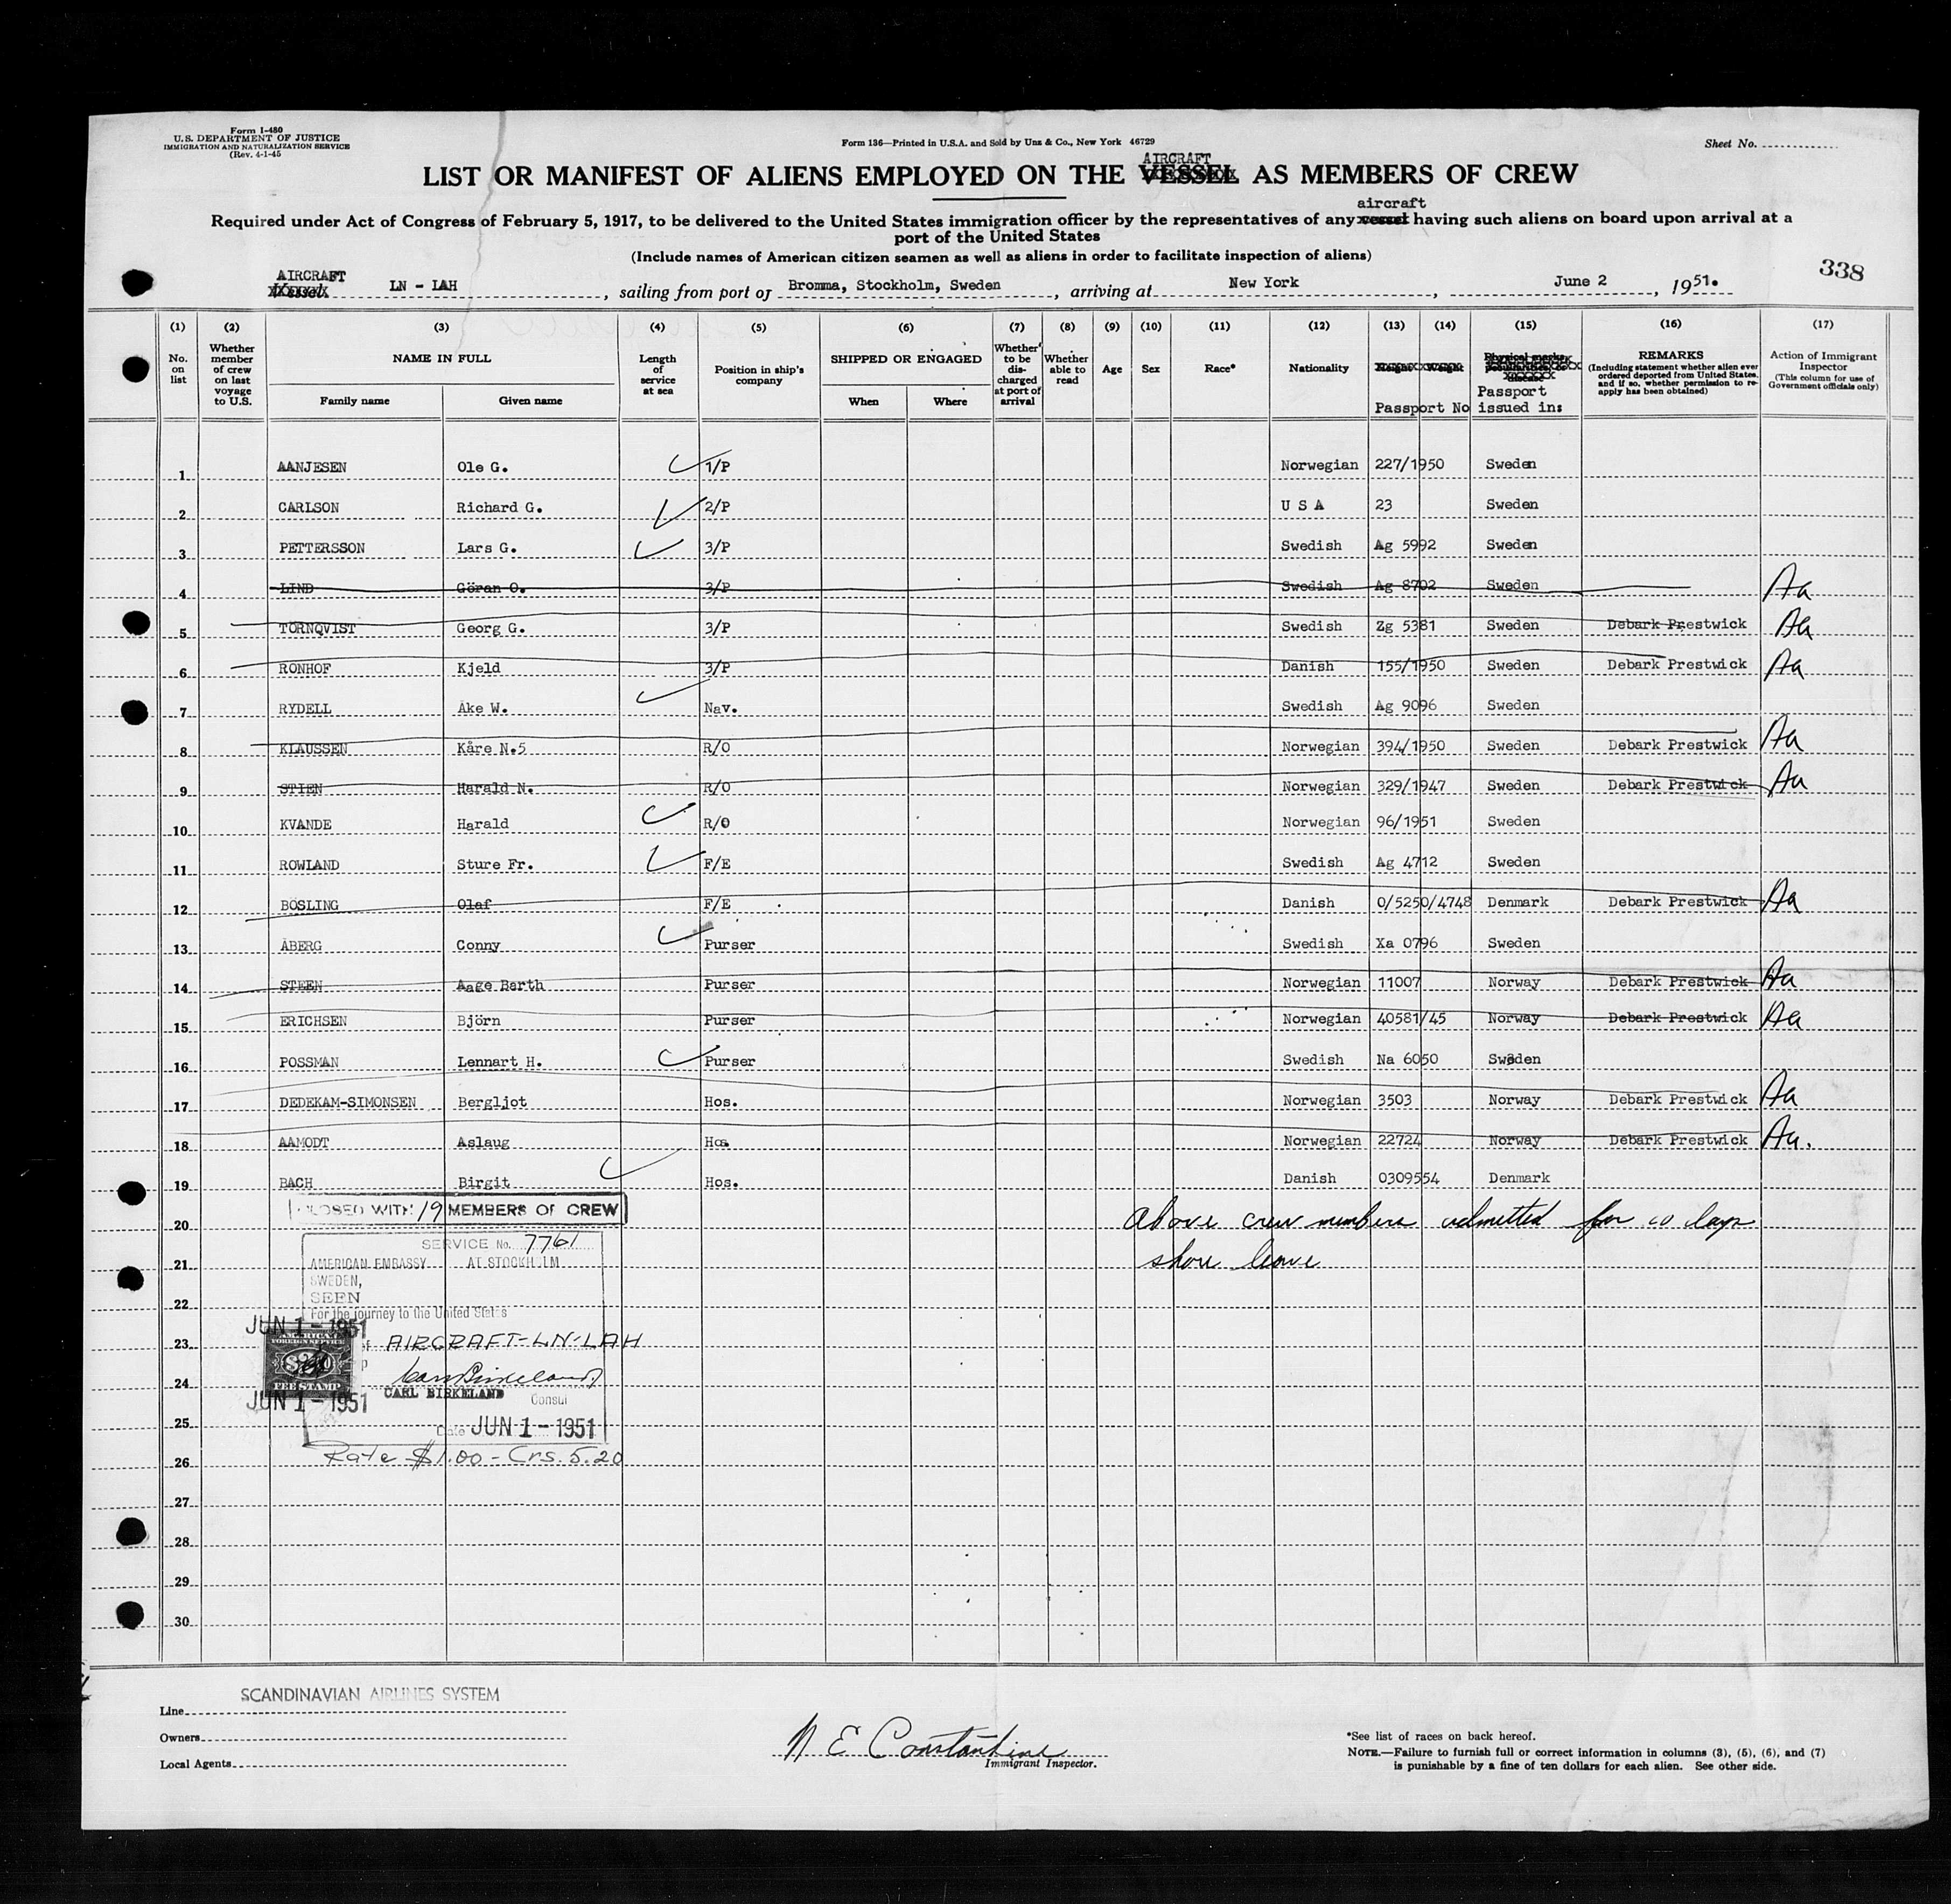 Form I-480
U.S. DEPARTMENT OF JUSTICE
IMMIGRATION AND NATURALIZATION SERVICE
(Rev. 4-1-45
Form 136—Printed in U.S.A. and Sold by Unz & Co., New York 46729
Sheet No.
AIRCRAFT
LIST OR MANIFEST OF ALIENS EMPLOYED ON THE VESSEL AS MEMBERS OF CREW
aircraft
Required under Act of Congress of February 5, 1917, to be delivered to the United States immigration officer by the representatives of any vessel having such aliens on board upon arrival at a
port of the United States
(Include names of American citizen seamen as well as aliens in order to facilitate inspection of aliens)
338
AIRCRAFT
Vessel LN - LAH, sailing from port of Bromma, Stockholm, Sweden, arriving at New York, June 2, 1951.
(1) (2) (3) (4) (5) (6) (7) (8) (9) (10) (11) (12) (13) (14) (15) (16) (17)
No. on list
Whether member of crew on last voyage to U.S.
NAME IN FULL
Family name
Given name
Length of service at sea
Position in ship's company
SHIPPED OR ENGAGED
When
Where
Whether to be discharged at port of arrival
Whether able to read
Age
Sex
Race*
Nationality
Height Weight
Passport No
Physical marks, peculiarities, or disease
Passport issued in:
REMARKS
(Including statement whether alien ever ordered deported from United States, and if so, whether permission to reapply has been obtained)
Action of Immigrant Inspector
(This column for use of Government officials only)
1 AANJESEN Ole G. 1/P Norwegian 227/1950 Sweden
2 CARLSON Richard G. 2/P U S A 23 Sweden
3 PETTERSSON Lars G. 3/P Swedish Ag 5992 Sweden
4 LIND Göran O. 3/P Swedish Ag 8702 Sweden Aa
5 TÖRNQVIST Georg G. 3/P Swedish Zg 5381 Sweden Debark Prestwick Aa
6 RONHOF Kjeld 3/P Danish 155/1950 Sweden Debark Prestwick Aa
7 RYDELL Åke W. Nav. Swedish Ag 9096 Sweden
8 KLAUSSEN Kåre N.5 R/O Norwegian 394/1950 Sweden Debark Prestwick Aa
9 STIEN Harald N. R/O Norwegian 329/1947 Sweden Debark Prestwick Aa
10 KVANDE Harald R/O Norwegian 96/1951 Sweden
11 ROWLAND Sture Fr. F/E Swedish Ag 4712 Sweden
12 BOSLING Olaf F/E Danish 0/5250/4748 Denmark Debark Prestwick Aa
13 ÅBERG Conny Purser Swedish Xa 0796 Sweden
14 STEEN Aage Barth Purser Norwegian 11007 Norway Debark Prestwick Aa
15 ERICHSEN Björn Purser Norwegian 40581/45 Norway Debark Prestwick Aa
16 POSSMAN Lennart H. Purser Swedish Na 6050 Sweden
17 DEDEKAM-SIMONSEN Bergljot Hos. Norwegian 3503 Norway Debark Prestwick Aa
18 AAMODT Aslaug Hos. Norwegian 22724 Norway Debark Prestwick Aa.
19 BACH Birgit Hos. Danish 0309554 Denmark
CLOSED WITH 19 MEMBERS OF CREW
20
Above crew members admitted for days
SERVICE No. 7761
AMERICAN EMBASSY AT STOCKHOLM
21
shore leave
SWEDEN,
SEEN
22
For the journey to the United States
JUN 1 - 1951
AMERICAN
FOREIGN SERVICE
FEE STAMP
23
AIRCRAFT-LN-LAH
24
CARL BIRKELAND
Consul
JUN 1 - 1951
25
Date JUN 1 - 1951
Rate $1.00 - Crs. 5.20
26
27
28
29
30
SCANDINAVIAN AIRLINES SYSTEM
Line
Owners
Local Agents
N E Constantine
Immigrant Inspector.
*See list of races on back hereof.
NOTE.—Failure to furnish full or correct information in columns (3), (5), (6), and (7)
is punishable by a fine of ten dollars for each alien. See other side.